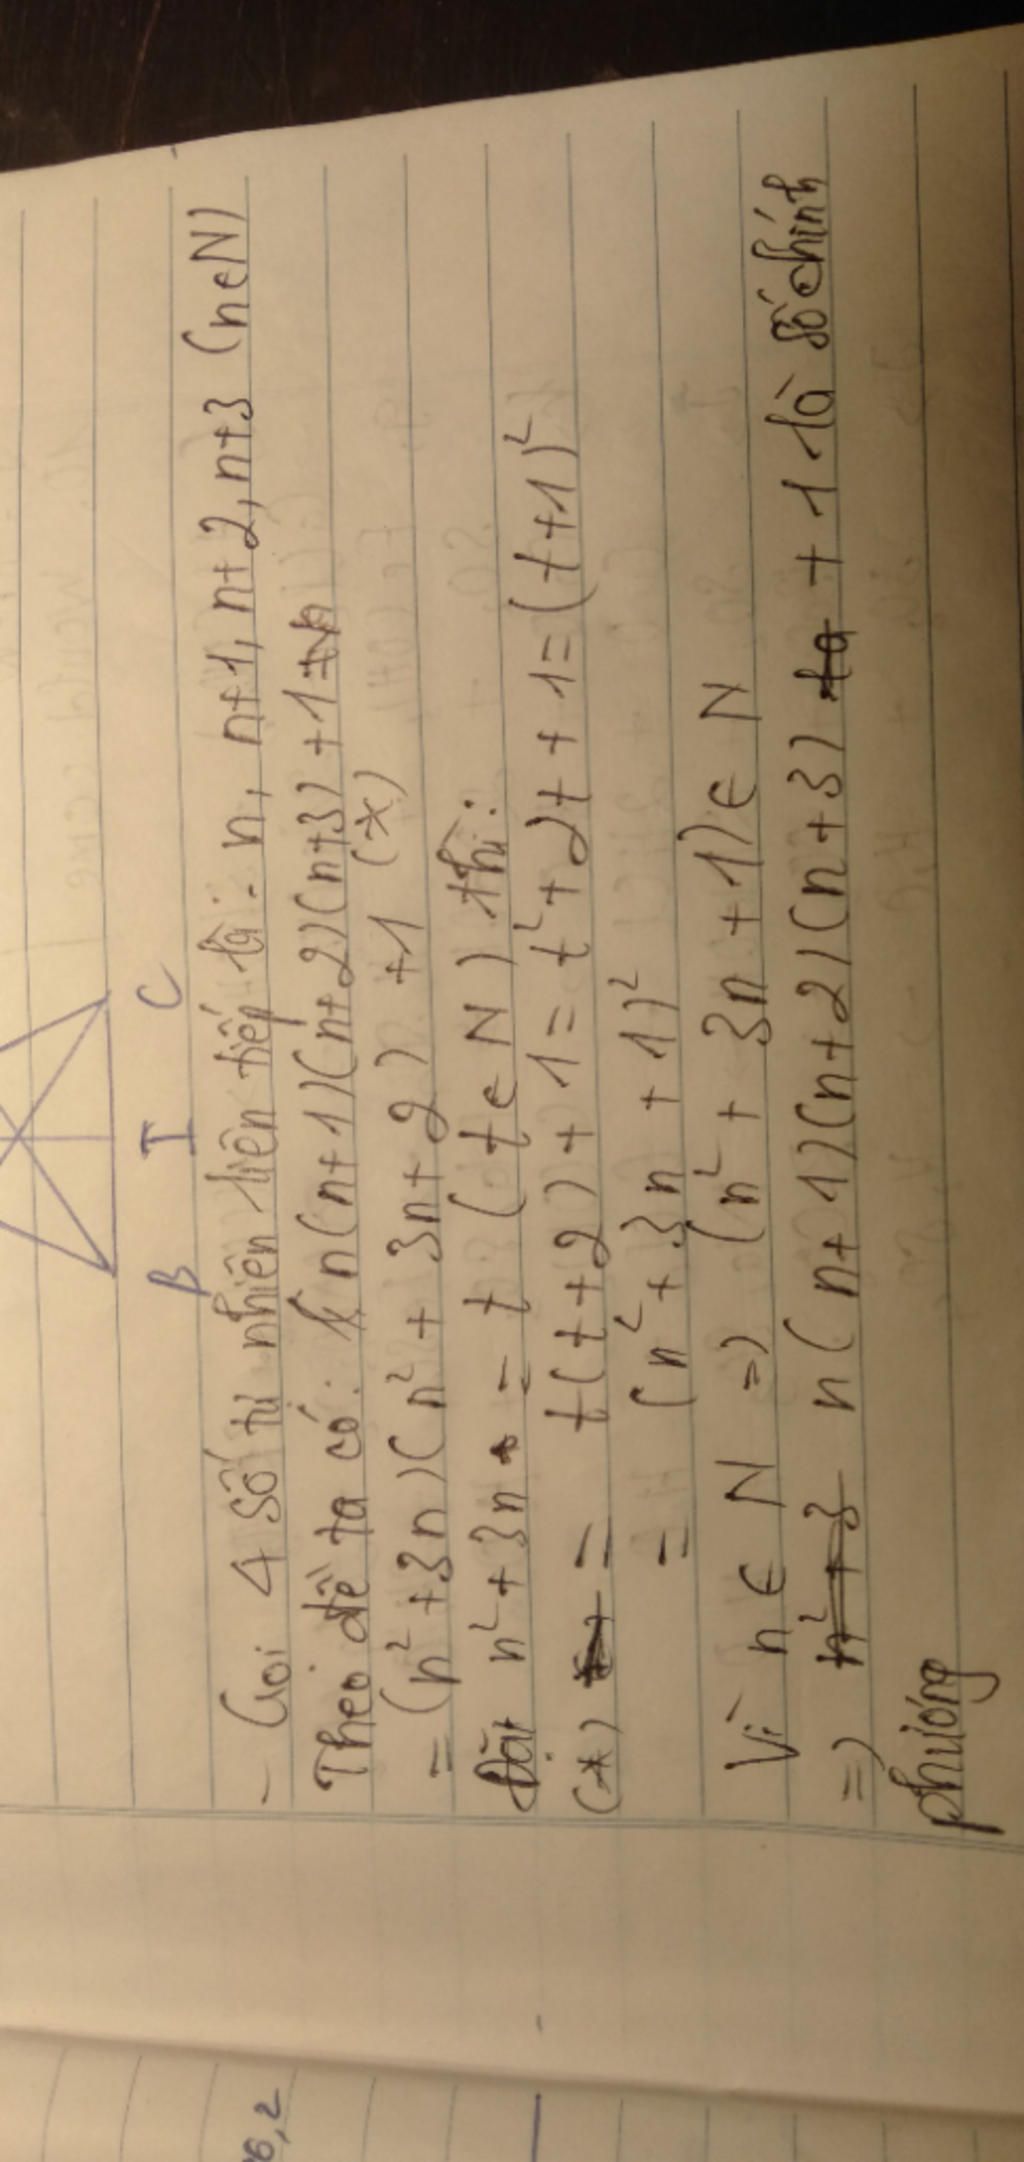 B I C
- Gọi 4 số tự nhiên liên tiếp là: n, n+1, n+2, n+3 (n∈N)
Theo đề ta có: n(n+1)(n+2)(n+3)+1
= (n²+3n)(n²+3n+2) +1 (*)
Đặt n²+3n = t (t∈N) thì:
(*) = t(t+2)+1 = t²+2t+1 = (t+1)²
= (n²+3n+1)²
Vì n∈N => (n²+3n+1)∈N
=> n²+3 n(n+1)(n+2)(n+3) +1 là số chính
phương
6,2